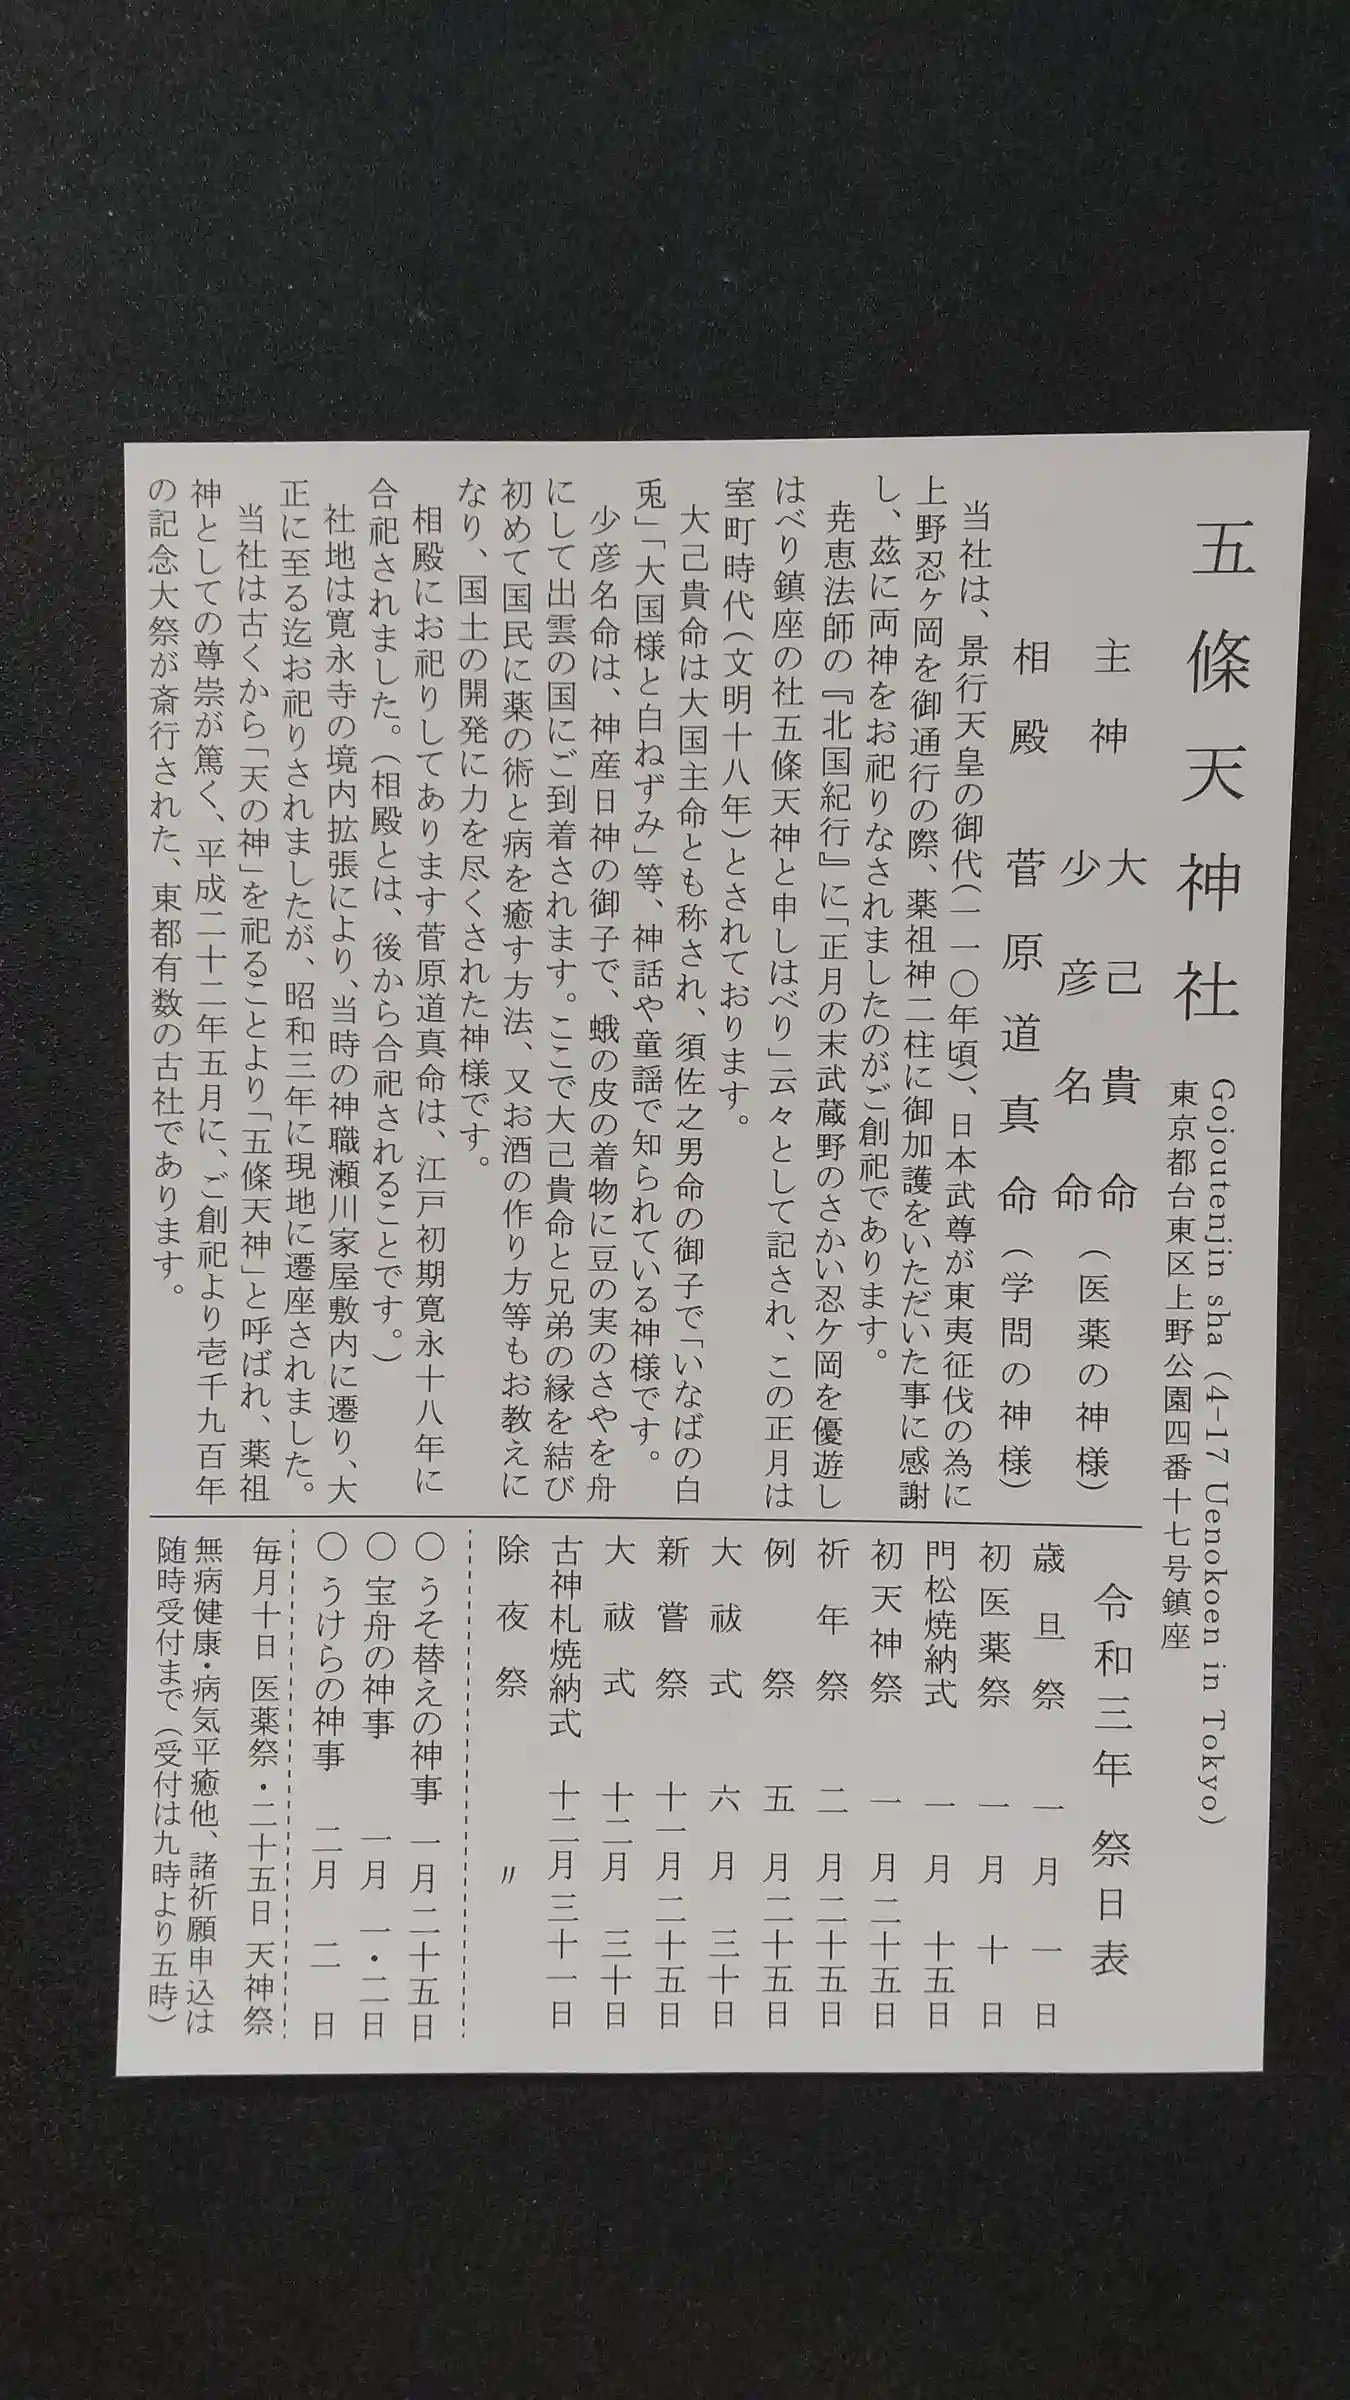 五條天神社
Gojoutenjin sha (4-17 Uenokoen in Tokyo)
東京都台東区上野公園四番十七号鎮座
主神 大己貴命
少彦名命 (医薬の神様)
相殿 菅原道真命 (学問の神様)
当社は、景行天皇の御代(一一〇年頃)、日本武尊が東夷征伐の為に
上野忍ヶ岡を御通行の際、薬祖神二柱に御加護をいただいた事に感謝
し、茲に両神をお祀りなされましたのがご創祀であります。
尭恵法師の『北国紀行』に「正月の末武蔵野のさかい忍ケ岡を優遊し
はべり鎮座の社五條天神と申しはべり」云々として記され、この正月は
室町時代(文明十八年)とされております。
大己貴命は大国主命とも称され、須佐之男命の御子で「いなばの白
兎」「大国様と白ねずみ」等、神話や童謡で知られている神様です。
少彦名命は、神産日神の御子で、蛾の皮の着物に豆の実のさやを舟
にして出雲の国にご到着されます。ここで大己貴命と兄弟の縁を結び
初めて国民に薬の術と病を癒す方法、又お酒の作り方等もお教えに
なり、国土の開発に力を尽くされた神様です。
相殿にお祀りしてあります菅原道真命は、江戸初期寛永十八年に
合祀されました。(相殿とは、後から合祀されることです。)
社地は寛永寺の境内拡張により、当時の神職瀬川家屋敷内に遷り、大
正に至る迄お祀りされましたが、昭和三年に現地に遷座されました。
当社は古くから「天の神」を祀ることより「五條天神」と呼ばれ、薬祖
神としての尊崇が篤く、平成二十二年五月に、ご創祀より壱千九百年
の記念大祭が斎行された、東都有数の古社であります。
令和三年 祭日表
歳旦祭 一月一日
初医薬祭 一月十日
門松焼納式 一月十五日
初天神祭 一月二十五日
祈年祭 二月二十五日
例祭 五月二十五日
大祓式 六月三十日
新嘗祭 十一月二十五日
大祓式 十二月三十日
古神札焼納式 十二月三十一日
除夜祭 〃
○うそ替えの神事 一月二十五日
○宝舟の神事 一月一・二日
○うけらの神事 二月二日
毎月十日 医薬祭・二十五日 天神祭
無病健康・病気平癒他、諸祈願申込は
随時受付まで(受付は九時より五時)